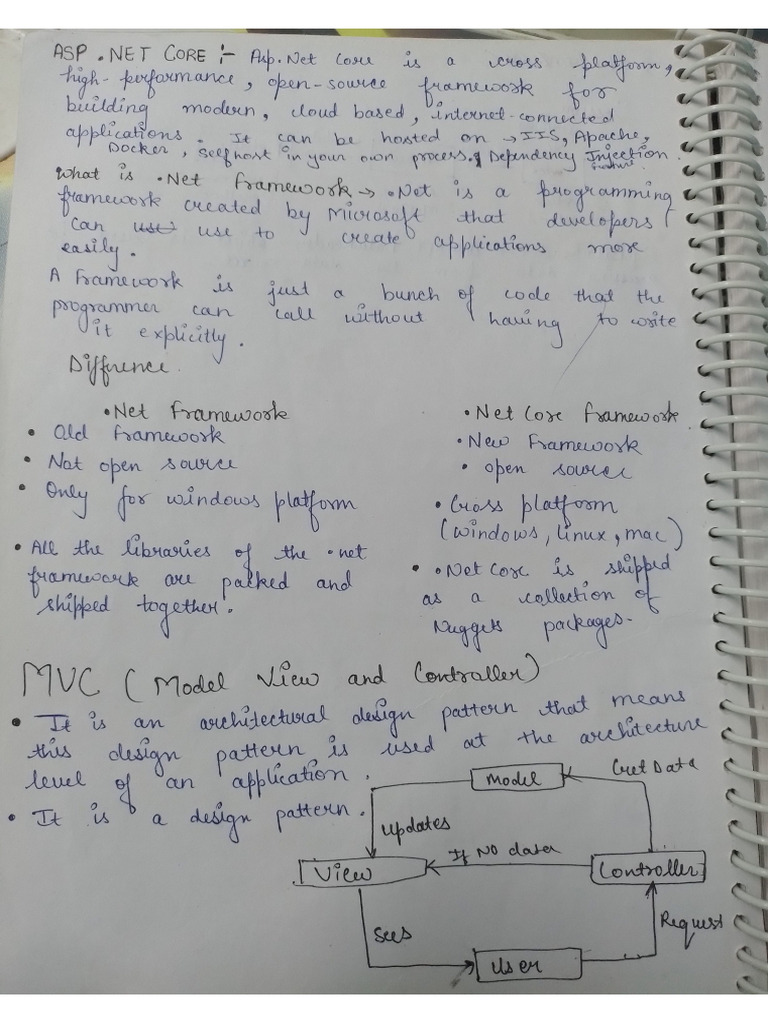 ASP .NET CORE :- Asp.Net Core is a cross platform,
high-performance, open-source framework for
building modern, cloud based, internet-connected
applications. It can be hosted on → IIS, Apache,
Docker, Selfhost in your own process. Dependency Injection
What is .Net Framework → .Net is a programming
framework created by Microsoft that developers
can use to create applications more
easily.
A framework is just a bunch of code that the
programmer can call without having to write
it explicitly.
Diffrence.
.Net Framework
• Old framework
• Not open source
• Only for windows platform
• All the libraries of the .net
framework are packed and
shipped together.
.Net Core framework
• New Framework
• open source
• Cross platform
(windows, linux, mac)
• .Net Core is shipped
as a collection of
Nuggets packages.
MVC (Model View and Controller)
• It is an architectural design pattern that means
this design pattern is used at the architecture
level of an application.
• It is a design pattern.
Model
Get Data
Updates
If No data
View
Controller
Sees
Request
User